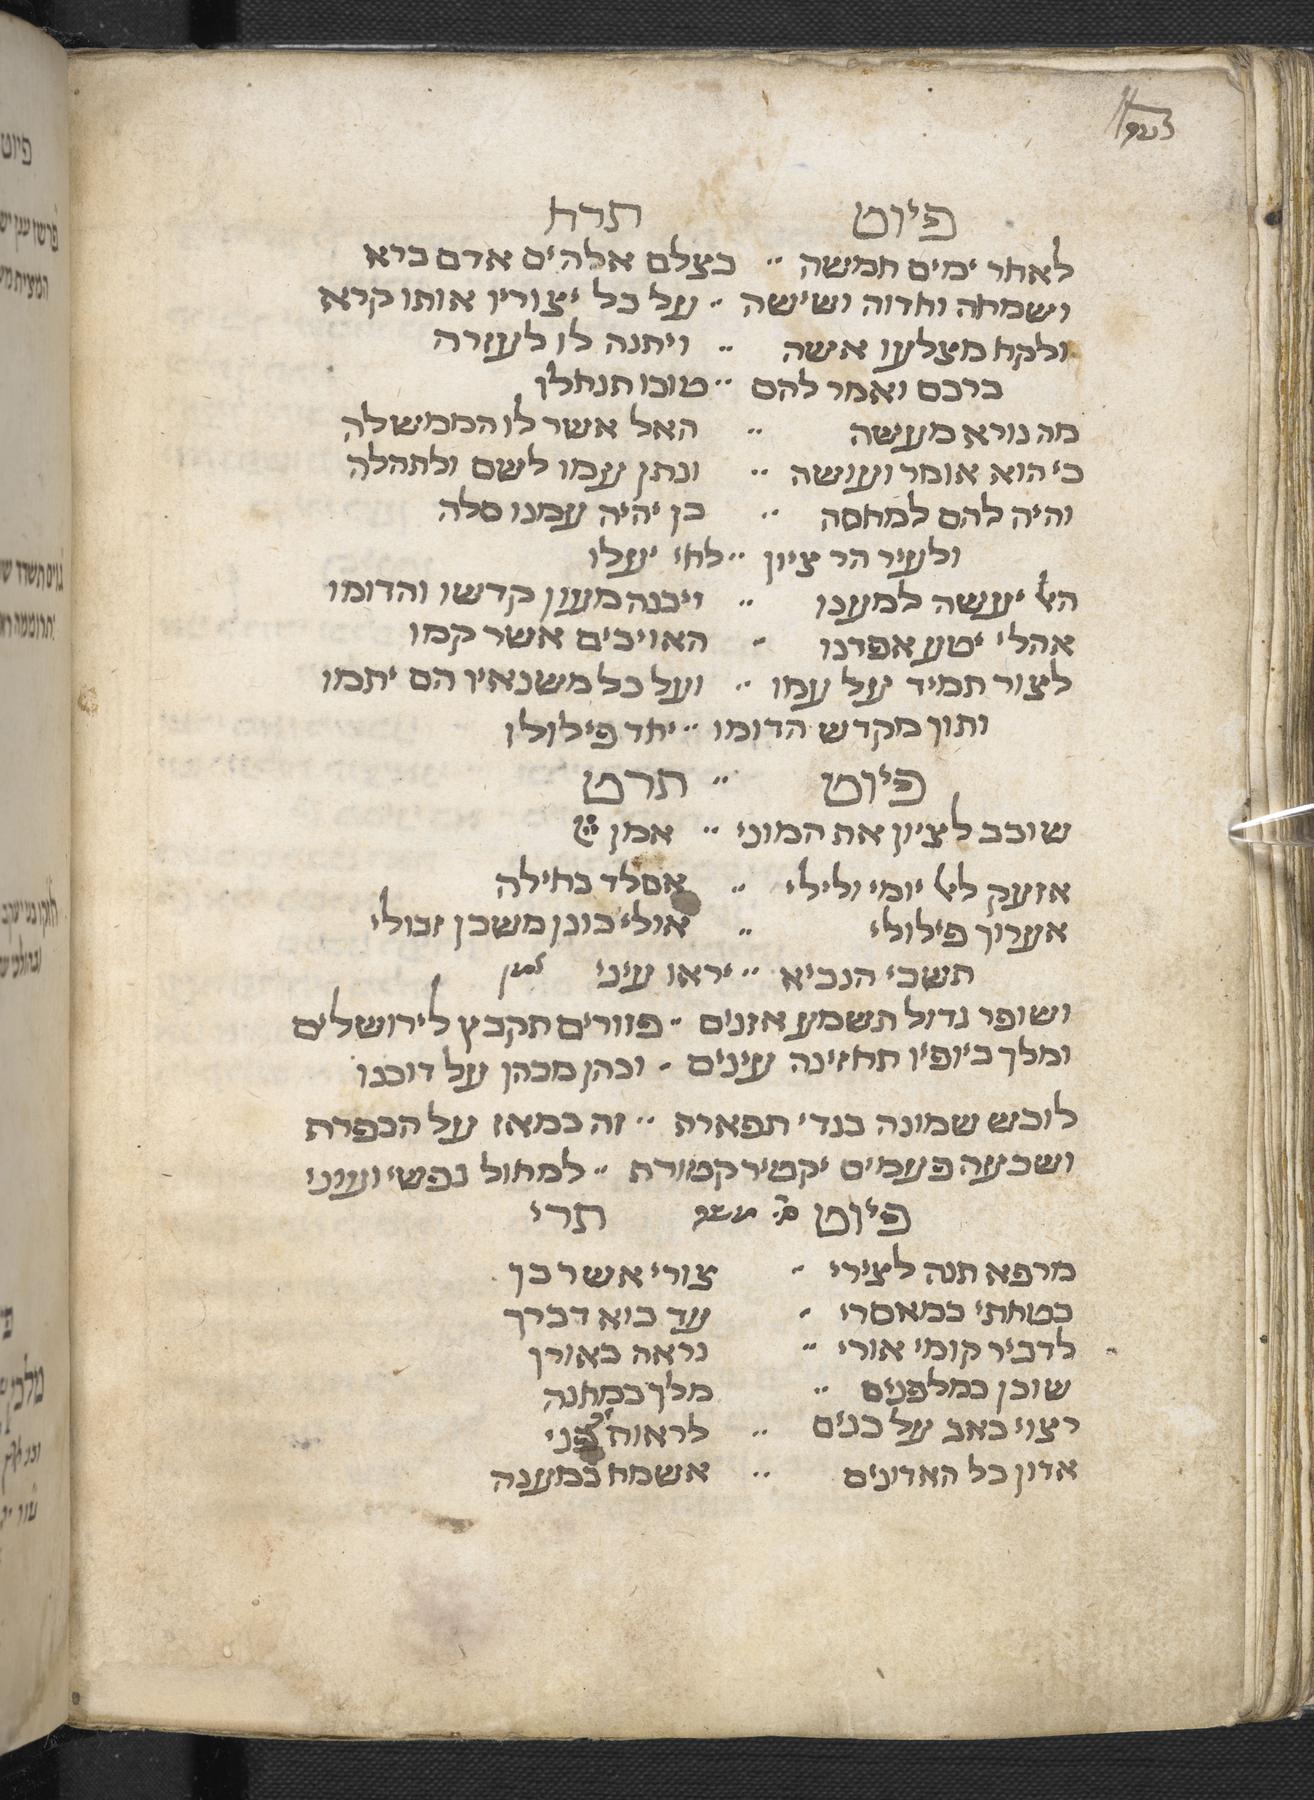 פיוט תרח
לאחר ימים חמשה ·· בצלם אלהים אדם ברא
ושמחה וחדוה ושישה ·· על כל יצוריו אותו קרא
ולקח מצלעו אשה ·· ויתנה לו לעזרה
ברכם ואמר להם ·· טובו תנחלו
מה נורא מעשה ·· האל אשר לו הממשלה
כי הוא אומר ועושה ·· ונתן עמו לשם ולתהלה
והיה להם למחסה ·· כן יהיה עמנו סלה
ולעיר הר ציון ·· לחי יעלו
האל יעשה למענו ·· ויבנה מעון קדשו והדומו
אהלי יטע אפדנו ·· האויבים אשר קמו
לצור תמיד על עמו ·· ועל כל משנאיו הם יתמו
ותוך מקדש הדומו ·· יחד פילולו
פיוט ·· תרט
שובב לציון את המוני ·· אמן
אזעק לאל יומי ולילי ·· אסלד בחילה
אערוך פילולי ·· אולי כונן משכן זבולי
תשבי הנביא ·· יראו עיני אמן
ושופר גדול תשמע אזנים ·· פזורים תקבץ לירושלים
ומלך ביופיו תחזינה עינים ·· וכהן מכהן על דוכנו
לובש שמונה בגדי תפארה ·· זה כמאז על הכפרת
ושבעה פעמים יקטיר קטורת ·· למחול נפשי ועוני
פיוט תרי
מרפא תנה לצירי ·· צורי אשר כן
בטחתי במאסרי ·· עד בוא דברך
לדביר קומי אורי ·· נראה באורן
שוכן במלפנים ·· מלך במחנה
רצוי כאב על בנים ·· לראות פני
אדון כל האדונים ·· אשמח במענה